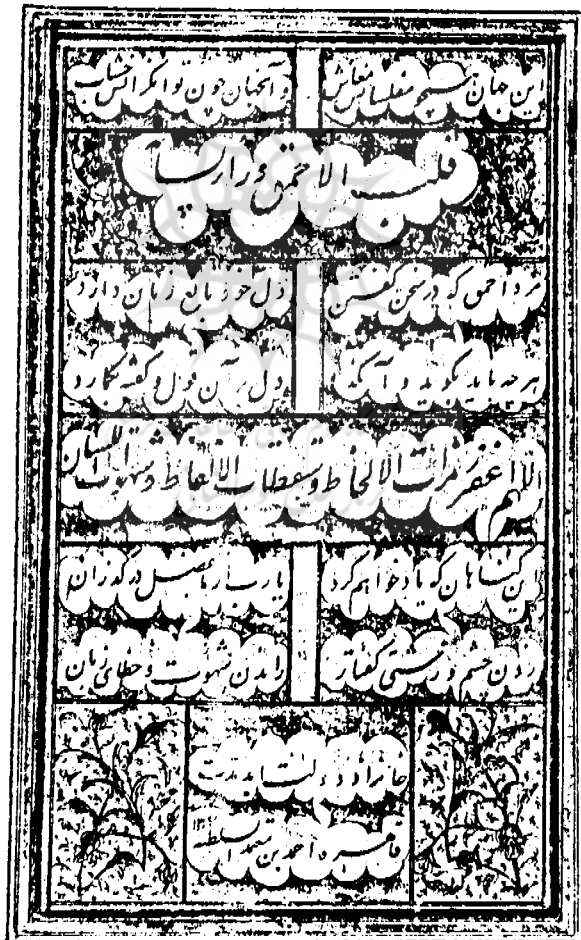 این جهان همچو مفلسانش معاش و آنجهان چون توانگرانش حساب
قلب الاحمق وراء لسانه
مرد احمق که در سخن گفتن دل خود زبان زیان دارد
هرچه باید بگوید و آنگه دل بر آن قول و گفته بگمارد
اللهم اغفر رمزات الالحاظ وسقطات الالفاظ وشهوات اللسان
این گناهان که یاد خواهم کرد یارب از ما بفضل در گذران
زدن چشم و زشتی گفتار راندن شهوت و خطای زبان
خانزاد دولت ابد مدت
احمد بن